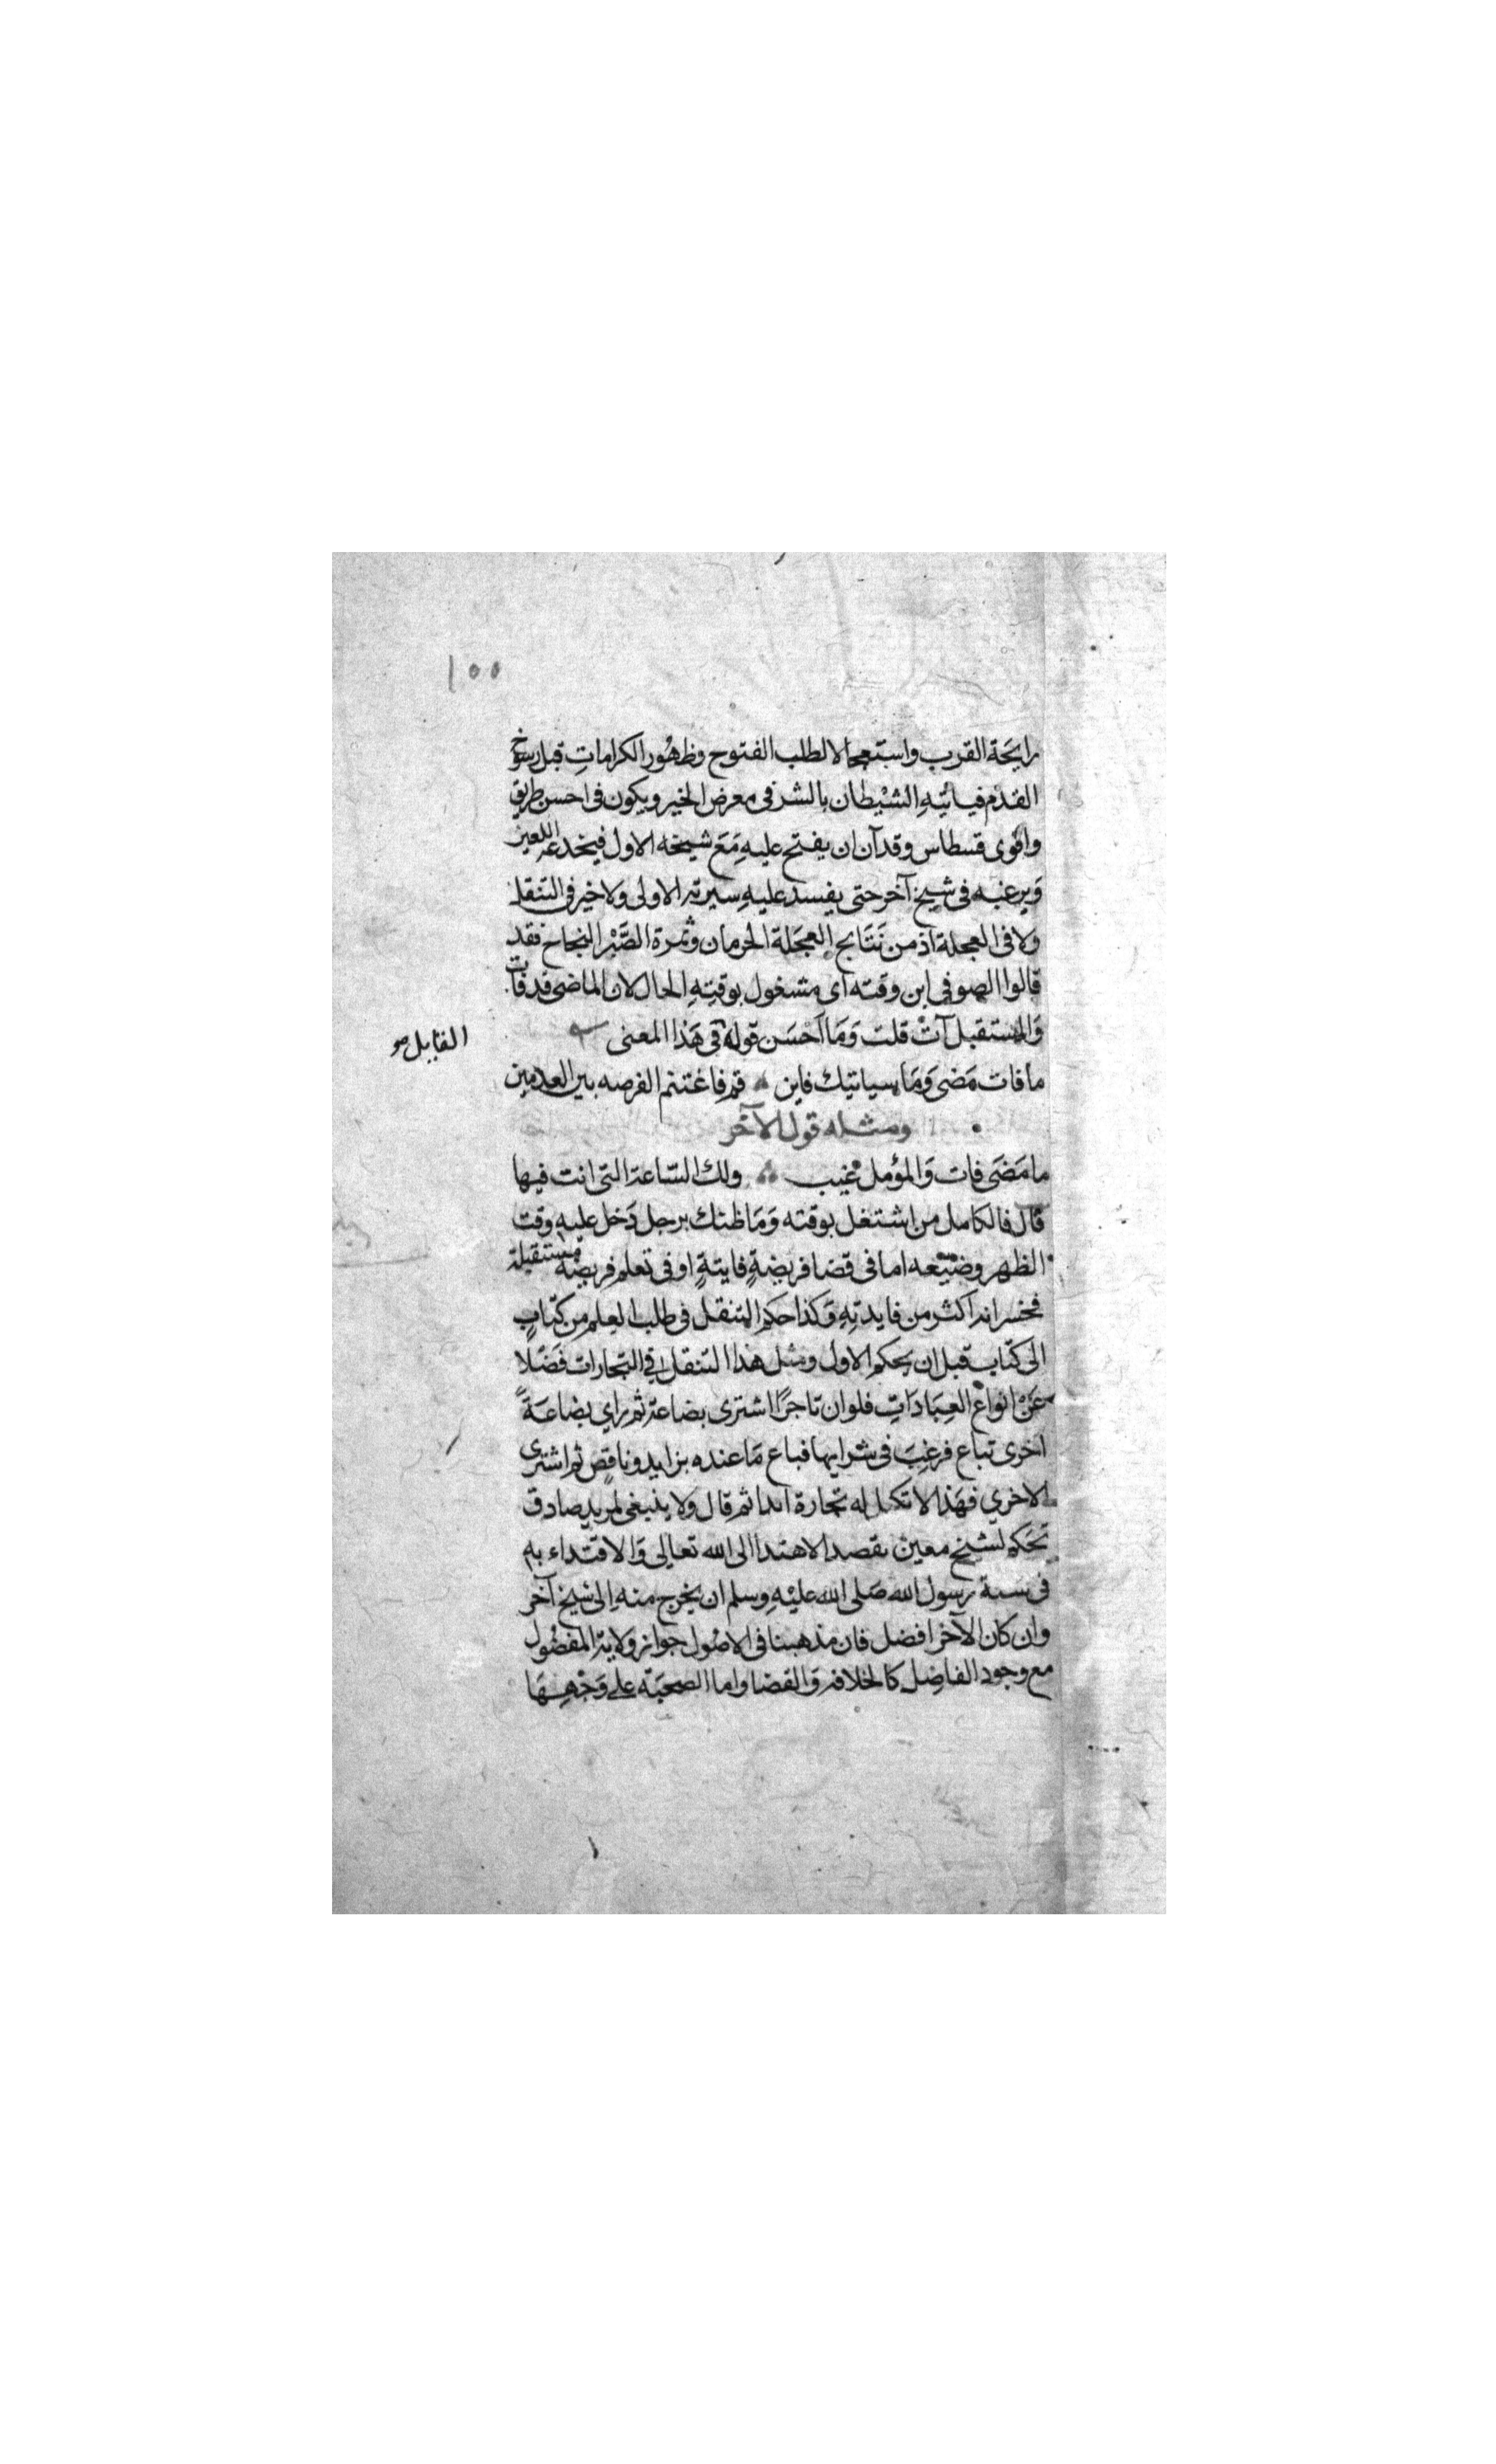 ١٥٥
رايحَة القرب واستعجالا لطلب الفتوح وظهُور الكراماتِ قبل رسوخ
القدَم فياتيهِ الشيْطان بالشر فى معرض الخير ويكون فى احسن طريق
واقوى قسطاس وقد آن ان يفتح عليهِ مَعَ شيخه الاول فيخدعه اللعين
وَيرغبه فى شيخ آخر حتى يفسد عليهِ سيرته الاولى ولا خير فى التنقل
ولا فى العجلة اذ من نَتَايج العجَلة الحرمان وثمرة الصَّبْر النجاح فقد
قالوا الصوفى ابن وقته اى مشغول بوقتِهِ الحال لان الماضى قد فات
وَالمستقبل آت قلت وَمَا اَحسَن قوله فى هَذا المعنى
القايل صو
ما فات مَضى وَمَا سياتيك فاين قم فاغتنم الفرصه بين العدمين
ومثله قول الآخر
ما مَضَى فات وَالمؤمل غيب ولك السّاعة التى انت فيها
قال فالكامل من اشتغل بوقته وَمَا ظنك برجل دَخل عليهِ وقت
الظهر وضيّعه اما فى قضا فريضةٍ فايتةٍ او فى تعلم فريضة مستقبلة
فخسرانه اكثر من فايدتِهِ وَكذا حكم المتنقل فى طلب العلم من كتابٍ
الى كتاب قبل ان يحكم الاول ومثل هذا التنقل فى التجارات فَضلًا
عَنْ انواع العِبَادَاتِ فلو ان تاجرًا اشترى بضاعة ثم راي بضاعَةً
اخرى تباع فرغِبَ فى شرايها فباع مَا عنده بزايد وناقِص ثم اشترى
الاخري فهَذا لا تكمل له تجارة ابدا ثم قال ولا ينبغى لمريد صادق
تحَكم لشيخ معين بقصد الاهتدا الى الله تعالى وَالاقتداء به
فى سنة رسول الله صَلى الله عليْهِ وسلم ان يخرج منه اِلى شيخ آخر
وان كان الآخر افضل فان مذهبنا فى الاصُول جواز ولاية المفضُول
مع وجود الفاضِل كالخلافة وَالقضا واما الصحبَة على وَجْهِهَا